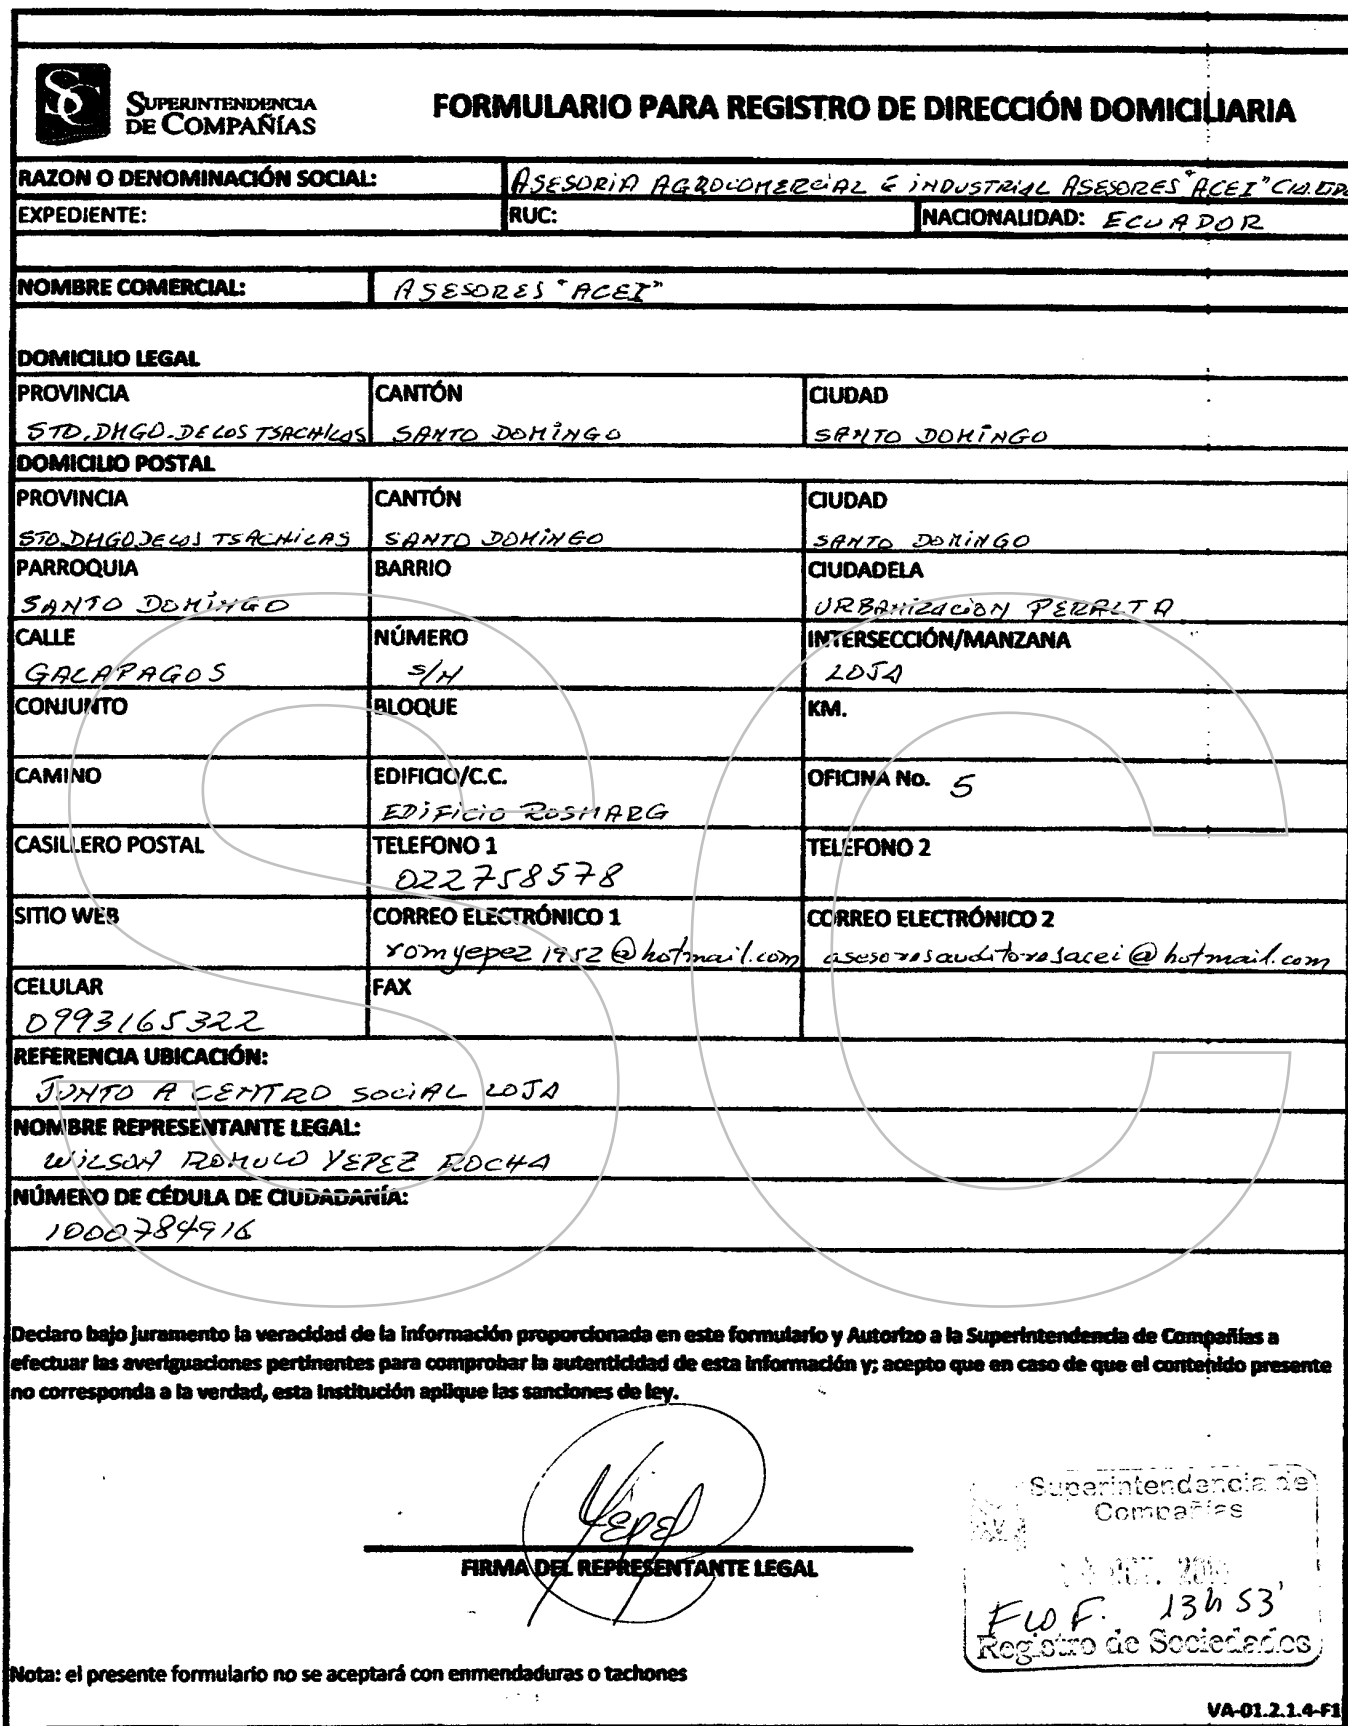 SUPERINTENDENCIA
DE COMPAÑÍAS
FORMULARIO PARA REGISTRO DE DIRECCIÓN DOMICILIARIA
RAZON O DENOMINACIÓN SOCIAL: ASESORIA AGROCOMERCIAL E INDUSTRIAL ASESORES "ACEI" CIA.LTDA
EXPEDIENTE: RUC: NACIONALIDAD: ECUADOR
NOMBRE COMERCIAL: ASESORES "ACEI"
DOMICILIO LEGAL
PROVINCIA CANTÓN CIUDAD
STO.DMGO.DE LOS TSACHILAS SANTO DOMINGO SANTO DOMINGO
DOMICILIO POSTAL
PROVINCIA CANTÓN CIUDAD
STO.DMGO DE LOS TSACHILAS SANTO DOMINGO SANTO DOMINGO
PARROQUIA BARRIO CIUDADELA
SANTO DOMINGO URBANIZACION PERALTA
CALLE NÚMERO INTERSECCIÓN/MANZANA
GALAPAGOS S/N LOJA
CONJUNTO BLOQUE KM.
CAMINO EDIFICIO/C.C. OFICINA No. 5
EDIFICIO ROSMARG
CASILLERO POSTAL TELEFONO 1 TELEFONO 2
022758578
SITIO WEB CORREO ELECTRÓNICO 1 CORREO ELECTRÓNICO 2
romyepez1952@hotmail.com asesoresauditoresacei@hotmail.com
CELULAR FAX
0993165322
REFERENCIA UBICACIÓN:
JUNTO A CENTRO SOCIAL LOJA
NOMBRE REPRESENTANTE LEGAL:
WILSON ROMULO YEPEZ ROCHA
NÚMERO DE CÉDULA DE CIUDADANÍA:
1000784916
Declaro bajo juramento la veracidad de la información proporcionada en este formulario y Autorizo a la Superintendencia de Compañías a
efectuar las averiguaciones pertinentes para comprobar la autenticidad de esta información y; acepto que en caso de que el contenido presente
no corresponda a la verdad, esta Institución aplique las sanciones de ley.
Yepez
FIRMA DEL REPRESENTANTE LEGAL
Superintendencia de
Compañías
13h53'
Registro de Sociedades
Nota: el presente formulario no se aceptará con enmendaduras o tachones
VA-01.2.1.4-F1